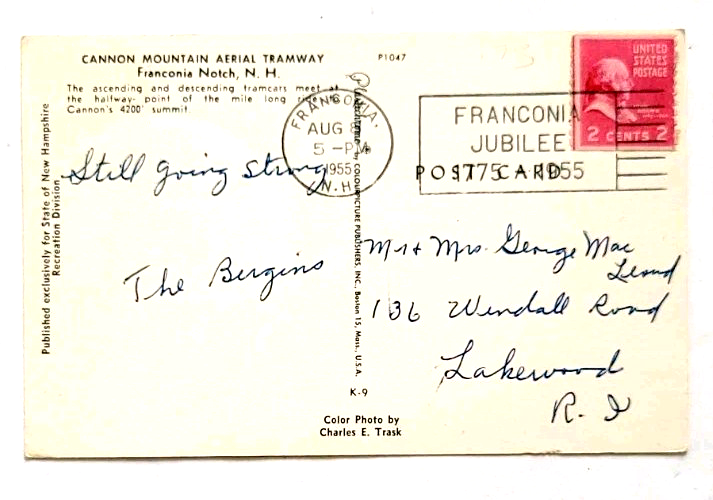 CANNON MOUNTAIN AERIAL TRAMWAY
Franconia Notch, N. H.
The ascending and descending tramcars meet at
the halfway point of the mile long ride
Cannon's 4200' summit.
P1047
Published exclusively for State of New Hampshire
Recreation Division
Plastichrome by COLOURPICTURE PUBLISHERS, INC., Boston 15, Mass., U.S.A.
FRANCONIA.
AUG 8
5 - PM
1955
N. H.
FRANCONIA
JUBILEE
1775 - 1955
UNITED
STATES
POSTAGE
2 CENTS 2
POST CARD
Still going strong
The Bergins
Mr & Mrs. George Mac
Leod
136 Wendall Road
Lakewood
R. I
K-9
Color Photo by
Charles E. Trask